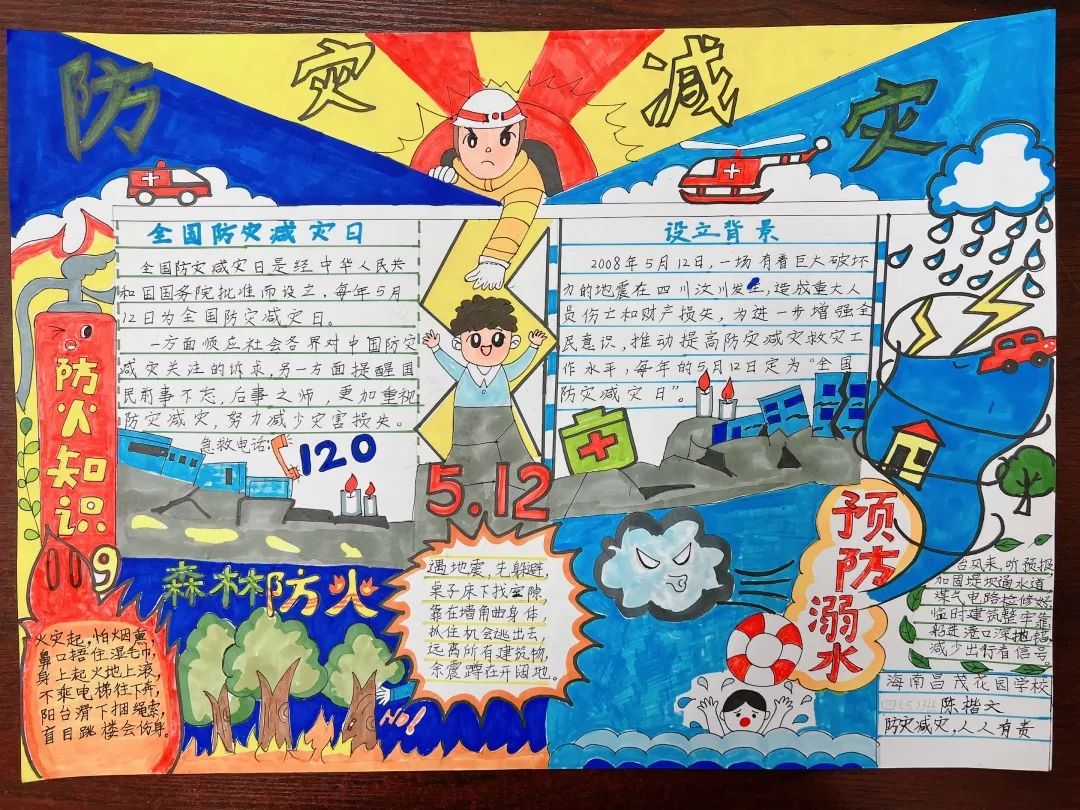 防灾减灾
全国防灾减灾日
全国防灾减灾日是经中华人民共
和国国务院批准而设立，每年5月
12日为全国防灾减灾日。
一方面顺应社会各界对中国防灾
减灾关注的诉求，另一方面提醒国
民前事不忘，后事之师，更加重视
防灾减灾，努力减少灾害损失。
急救电话：
120
设立背景
2008年5月12日，一场有着巨大破坏
力的地震在四川汶川发生，造成重大人
员伤亡和财产损失，为进一步增强全
民意识，推动提高防灾减灾救灾工
作水平，每年的5月12日定为“全国
防灾减灾日”。
5.12
防火知识
119
火灾起，怕烟熏，
鼻口捂住湿毛巾，
身上起火地上滚，
不乘电梯往下奔，
阳台滑下捆绳索，
盲目跳楼会伤身。
森林防火
NO!
遇地震，先躲避，
桌子床下找空隙，
靠在墙角曲身体，
抓住机会逃出去，
远离所有建筑物，
余震蹲在开阔地。
预防溺水
台风来，听预报，
加固堤坝通水道，
煤气电路检修好，
临时建筑整牢靠，
船进港口深抛锚，
减少出行看信号。
海南昌茂花园学校
陈楷文
防灾减灾，人人有责